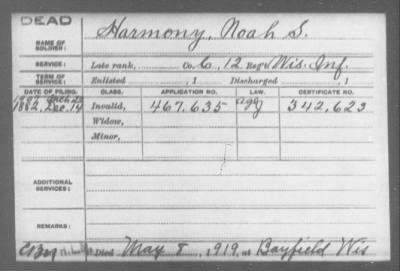 DEAD
NAME OF SOLDIER: Harmony, Noah S.
SERVICE: Late rank, Co. C, 12 Reg't Wis. Inf.
TERM OF SERVICE: Enlisted , 1 Discharged , 1
DATE OF FILING. CLASS. APPLICATION NO. LAW. CERTIFICATE NO.
1882, Dec. 14 Invalid, 467,635 342,623
Widow,
Minor,
ADDITIONAL SERVICES:
REMARKS:
Died May 8, 1919, at Bayfield Wis